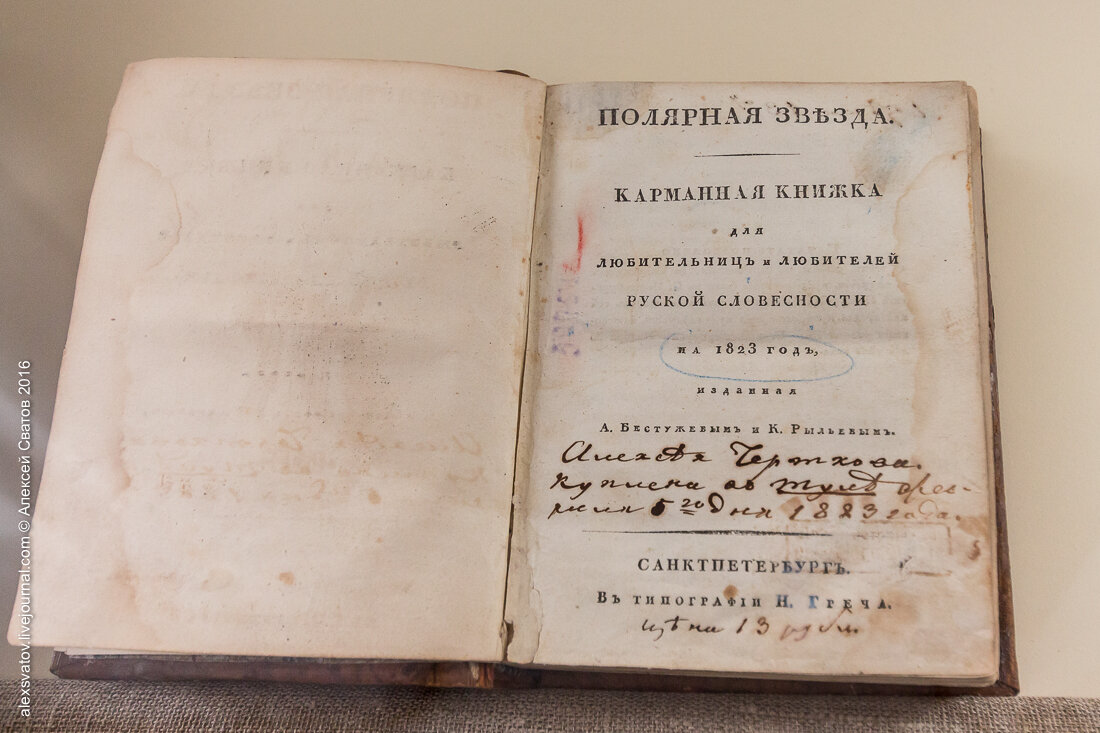 ПОЛЯРНАЯ ЗВѢЗДА.
КАРМАННАЯ КНИЖКА
ДЛЯ
ЛЮБИТЕЛЬНИЦЪ И ЛЮБИТЕЛЕЙ
РУСКОЙ СЛОВЕСНОСТИ
НА 1823 ГОДЪ,
изданная
А. Бестужевымъ и К. Рылѣевымъ.
Алексѣя Черткова.
куплена въ Тулѣ фев-
раля 5го дня 1823 года.
САНКТПЕТЕРБУРГЪ.
Въ типографіи Н. Греча.
цѣна 13 рубл.
alexsvatov.livejournal.com © Алексей Сватов 2016